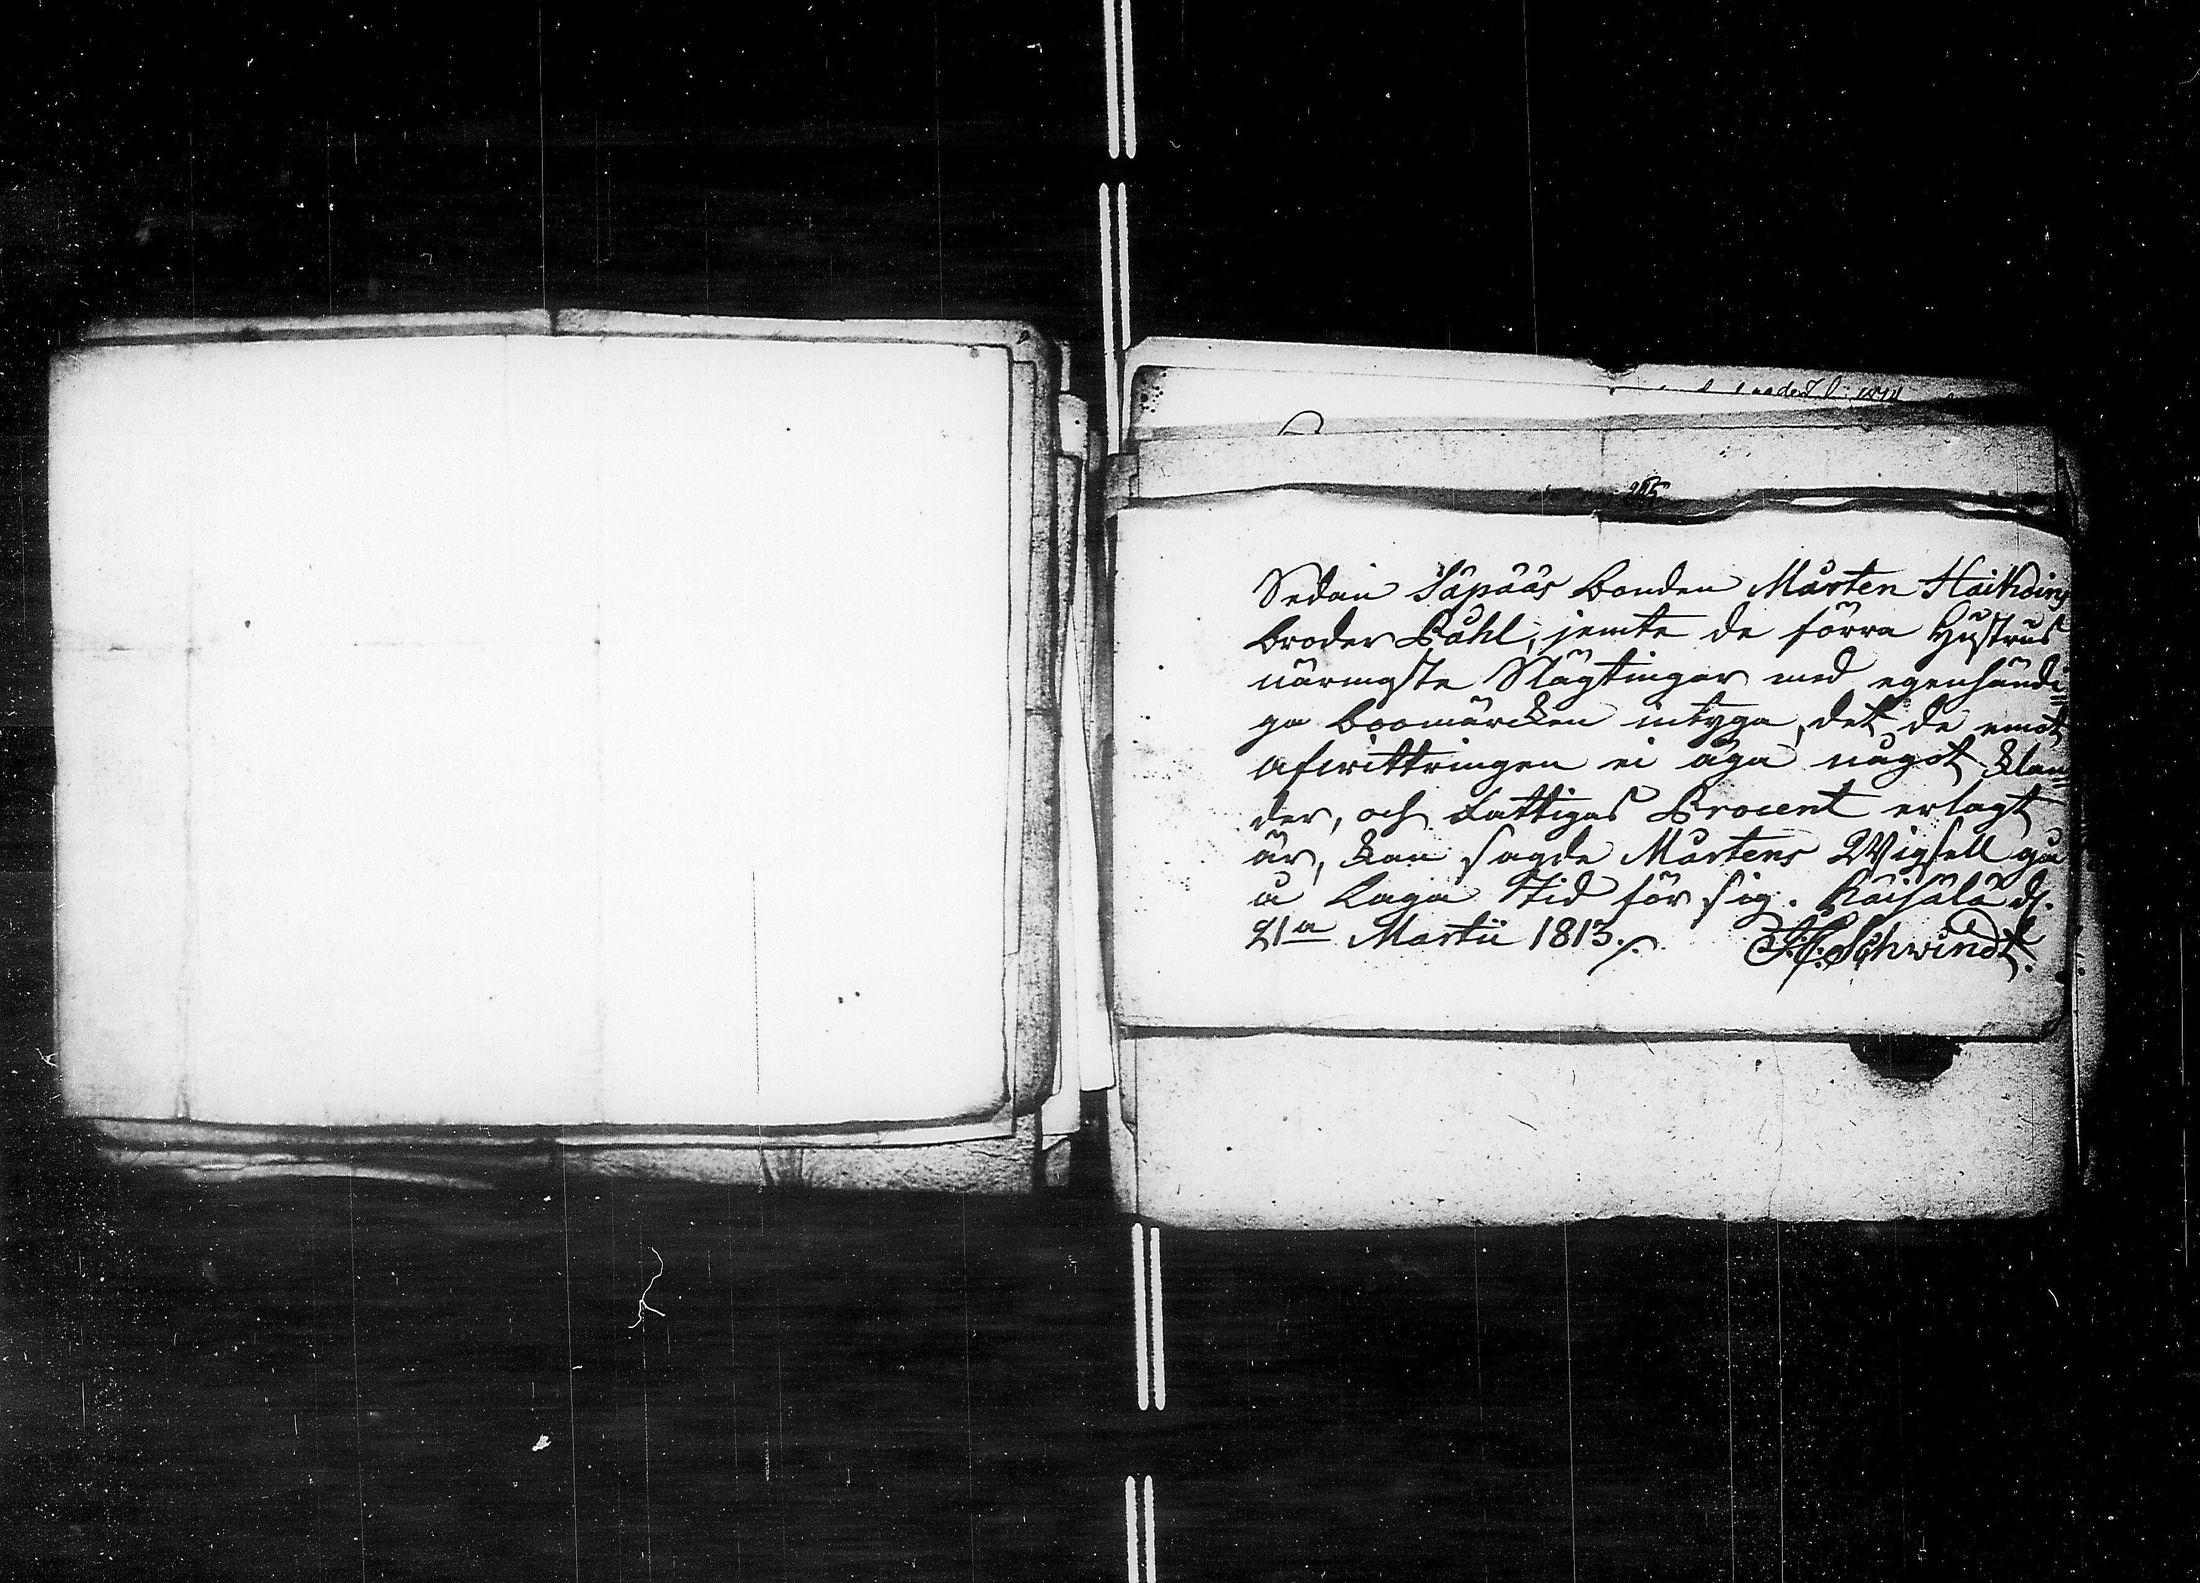 Sedan Säpääs bonden Mårten Haikoins
broder Påhl, jemte de förra Hustrus
närmaste Slägtingar med egenhändi=
ga boomärcken intyga, det de emot
afwittringen ei äga något klan=
der, och Fattigas Procent erlagt
är, kan sagde Mårtens Wigsell gå
å Laga Tid för sig. Räisälä d.
21a Martii 1813.
J. C. Schwindt.